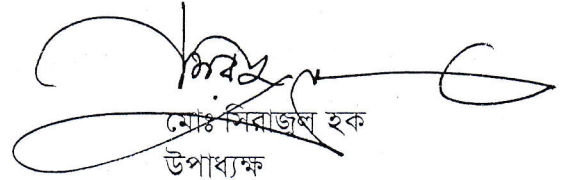 মোঃ সিরাজুল হক
উপাধ্যক্ষ